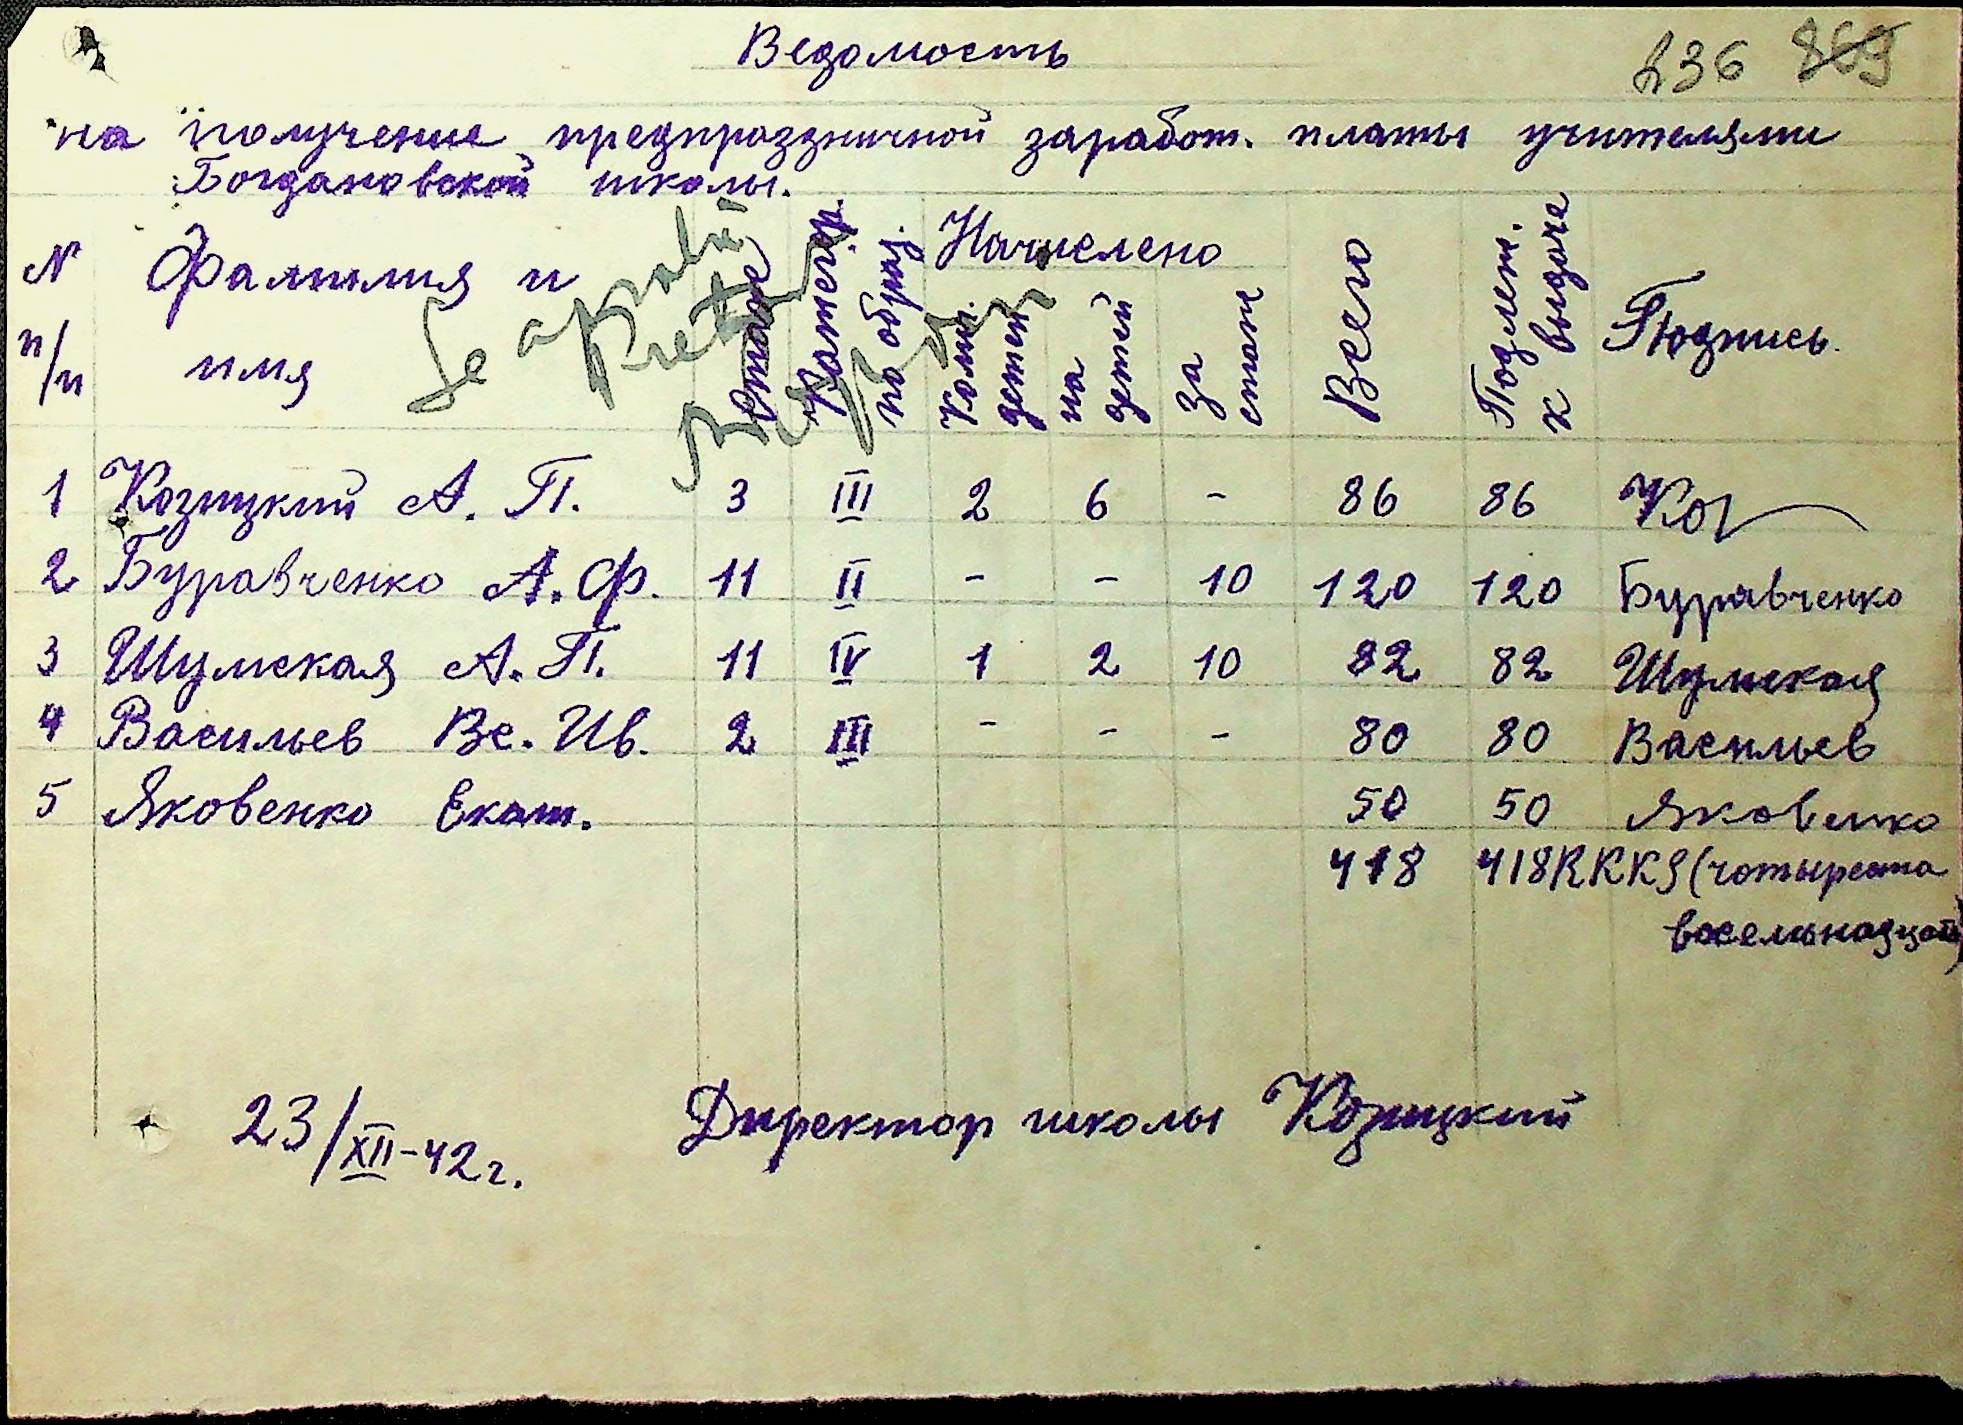 Ведомость
236 869
на получение предпраздничной заработ. платы учителями
Богдановской школы.
N п/п Фамилия и имя Стаж Категор. по образ. Начислено Колич. детей на детей за стаж Всего Подлеж. к выдаче Подпись.
Se aprobă
1 Козицкий А. П. 3 III 2 6 - 86 86 Коз
2 Буравченко А. Ф. 11 II - - 10 120 120 Буравченко
3 Шумская А. П. 11 IV 1 2 10 82 82 Шумская
4 Васильев Вс. Ив. 2 III - - - 80 80 Васильев
5 Яковенко Екат. 50 50 Яковенко
418 418 RKKS (чотыреста
восемьнадцать)
23/XII-42 г. Директор школы Козицкий